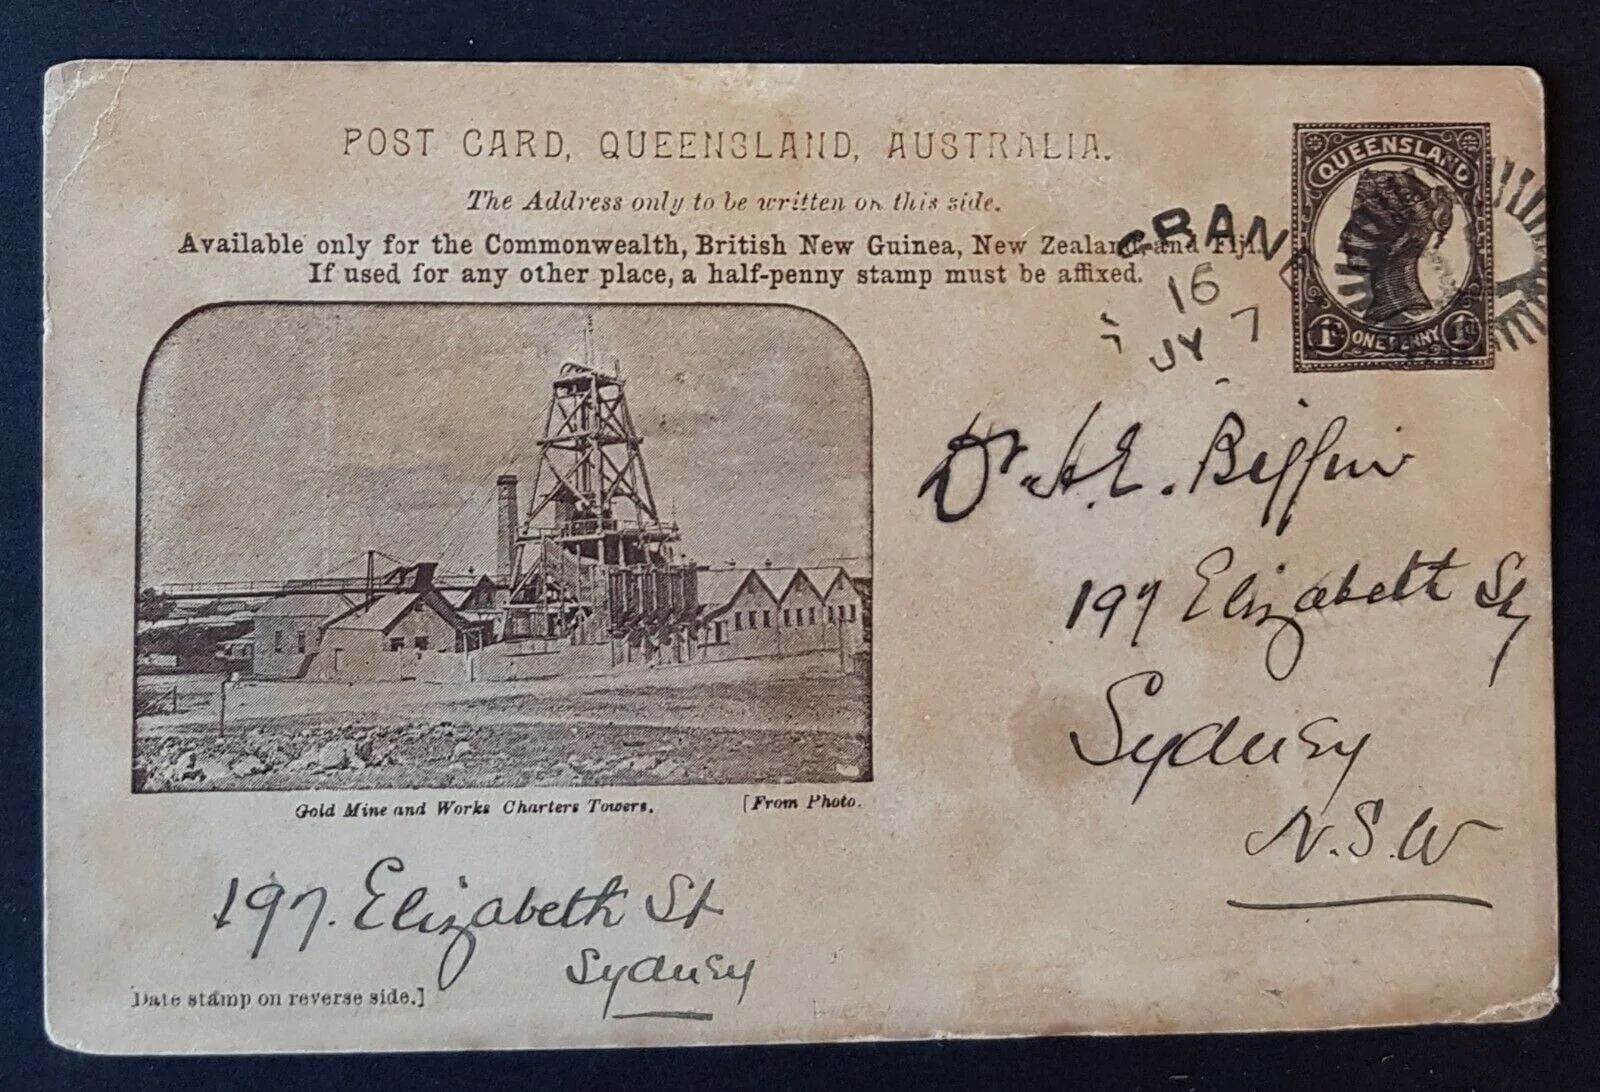 POST CARD, QUEENSLAND, AUSTRALIA.
The Address only to be written on this side.
Available only for the Commonwealth, British New Guinea, New Zealand, and Fiji.
If used for any other place, a half-penny stamp must be affixed.
QUEENSLAND
1D ONE PENNY 1D
16
JY 7
Dr. A. E. Biffin
197 Elizabeth St
Sydney
N.S.W
Gold Mine and Works Charters Towers. [From Photo.
197. Elizabeth St
Sydney
Date stamp on reverse side.]